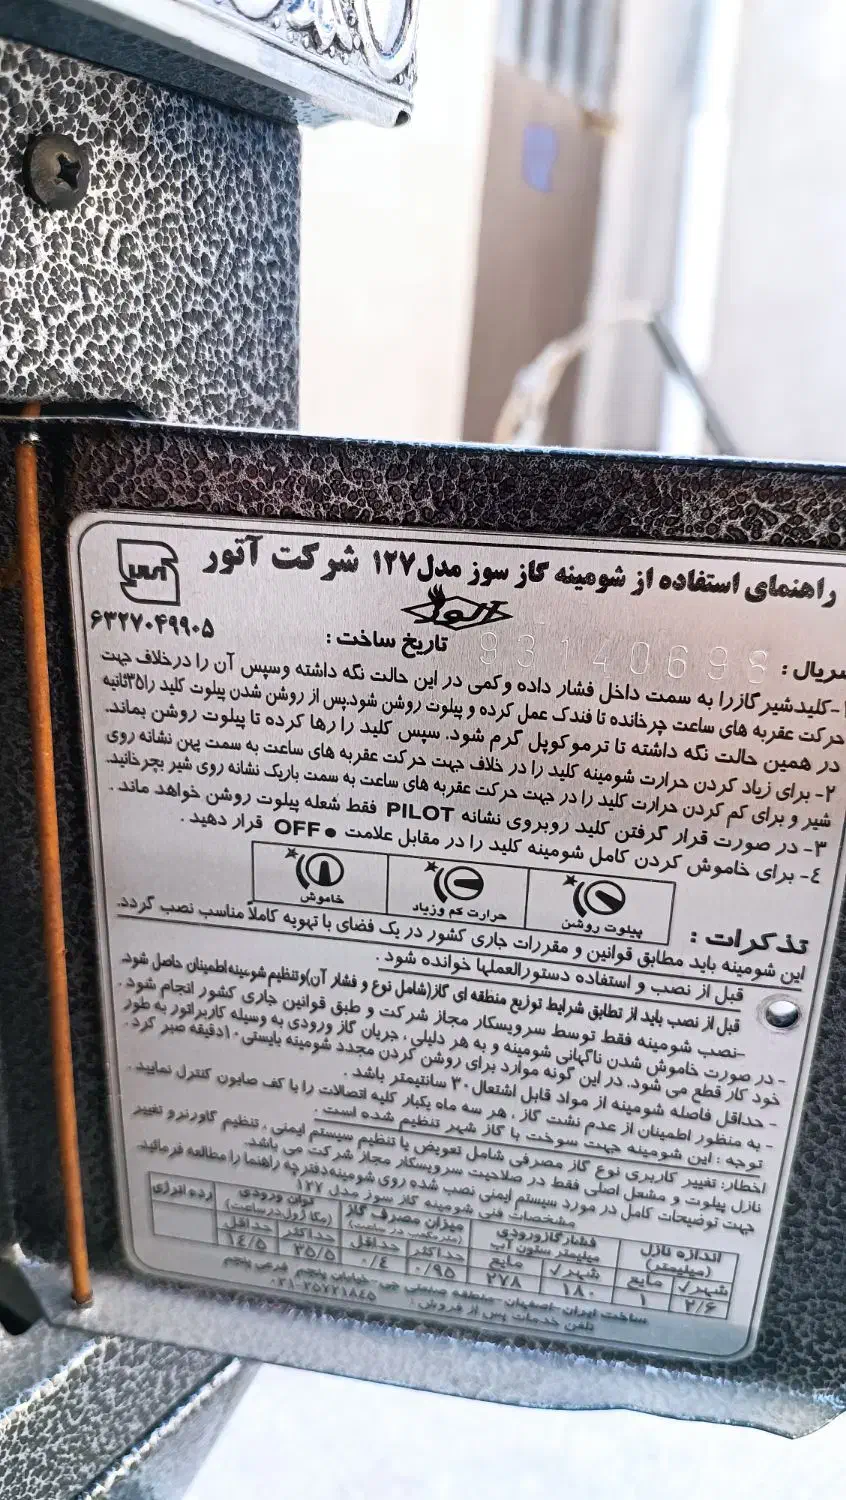 راهنمای استفاده از شومینه گاز سوز مدل ۱۲۷ شرکت آتور
آتور
۶۳۲۷۰۴۹۹۰۵
سریال : 9314069 تاریخ ساخت :
۱-کلیدشیرگازرا به سمت داخل فشار داده وکمی در این حالت نگه داشته وسپس آن را درخلاف جهت
حرکت عقربه های ساعت چرخانده تا فندک عمل کرده و پیلوت روشن شود.پس از روشن شدن پیلوت کلید را۳۵ثانیه
در همین حالت نگه داشته تا ترموکوپل گرم شود. سپس کلید را رها کرده تا پیلوت روشن بماند.
۲- برای زیاد کردن حرارت شومینه کلید را در خلاف جهت حرکت عقربه های ساعت به سمت پهن نشانه روی
شیر و برای کم کردن حرارت کلید را در جهت حرکت عقربه های ساعت به سمت باریک نشانه روی شیر بچرخانید.
۳- در صورت قرار گرفتن کلید روبروی نشانه PILOT فقط شعله پیلوت روشن خواهد ماند .
۴- برای خاموش کردن کامل شومینه کلید را در مقابل علامت ●OFF قرار دهید .
پیلوت روشن حرارت کم وزیاد خاموش
تذکرات :
این شومینه باید مطابق قوانین و مقررات جاری کشور در یک فضای با تهویه کاملاً مناسب نصب گردد.
قبل از نصب و استفاده دستورالعملها خوانده شود .
قبل از نصب باید از تطابق شرایط توزیع منطقه ای گاز(شامل نوع و فشار آن)وتنظیم شومینه اطمینان حاصل شود.
-نصب شومینه فقط توسط سرویسکار مجاز شرکت و طبق قوانین جاری کشور انجام شود .
- در صورت خاموش شدن ناگهانی شومینه و به هر دلیلی ، جریان گاز ورودی به وسیله کاربراتور به طور
خود کار قطع می شود. در این گونه موارد برای روشن کردن مجدد شومینه بایستی ۱۰دقیقه صبر کرد .
- حداقل فاصله شومینه از مواد قابل اشتعال ۳۰ سانتیمتر باشد .
- به منظور اطمینان از عدم نشت گاز ، هر سه ماه یکبار کلیه اتصالات را با کف صابون کنترل نمایید .
توجه : این شومینه جهت سوخت با گاز شهر تنظیم شده است .
اخطار: تغییر کاربری نوع گاز مصرفی شامل تعویض یا تنظیم سیستم ایمنی ، تنظیم گاورنر و تغییر
نازل پیلوت و مشعل اصلی فقط در صلاحیت سرویسکار مجاز شرکت می باشد.
جهت توضیحات کامل در مورد سیستم ایمنی نصب شده روی شومینه دفترچه راهنما را مطالعه فرمائید.
مشخصات فنی شومینه گاز سوز مدل ۱۲۷
اندازه نازل (میلیمتر) فشارگازورودی میلیمتر ستون آب میزان مصرف گاز (مترمکعب در ساعت) توان ورودی (مگاژول درساعت) رده انرژی
شهر✓ مایع شهر✓ مایع حداکثر حداقل حداکثر حداقل
۲/۶ ۱ ۱۸۰ ۲۷۸ ۰/۹۵ ۰/۴ ۳۵/۵ ۱۴/۵
ساخت ایران-اصفهان-منطقه صنعتی جی-خیابان پنجم فرعی پنجم
تلفن خدمات پس از فروش: ۰۳۱-۳۵۷۲۱۸۴۵